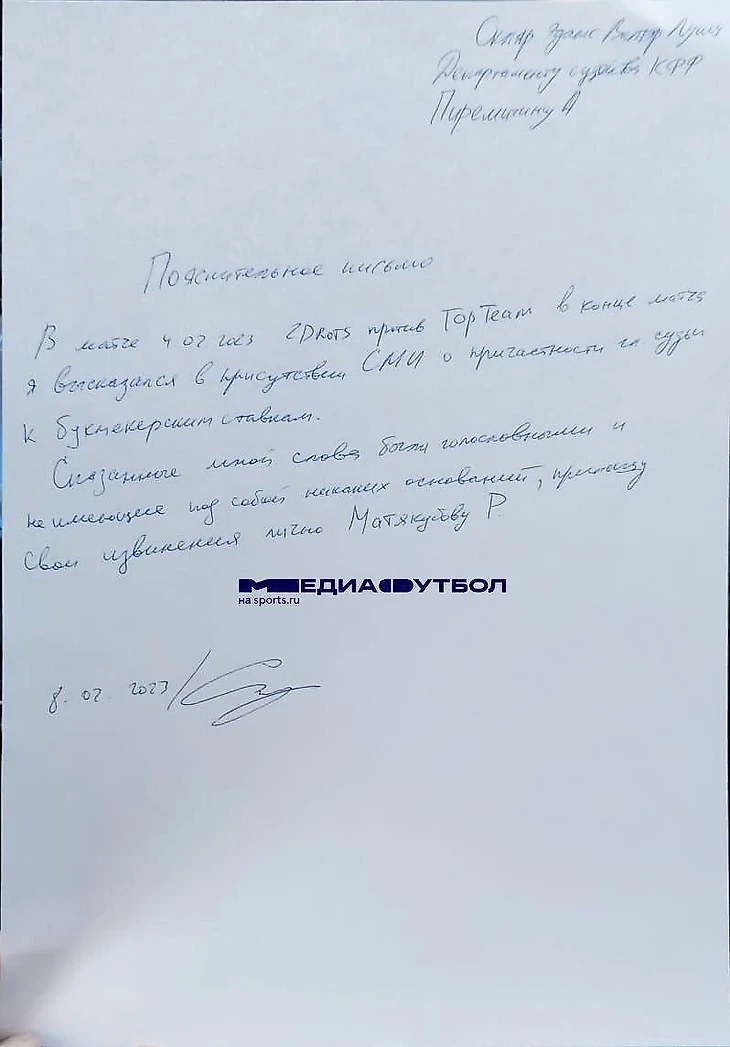 Скляр
Департаменту судейства КФФ
Пиремитину А
Пояснительное письмо
В матче 4 02 2023 2DROTS против TopTeam в конце матча
я высказался в присутствии СМИ о причастности гл судьи
к букмекерским ставкам.
Сказанные мной слова были голословными и
не имеющие под собой никаких оснований, приношу
свои извинения лично Матякубову Р.
МЕДИАФУТБОЛ
на sports.ru
8. 02. 2023